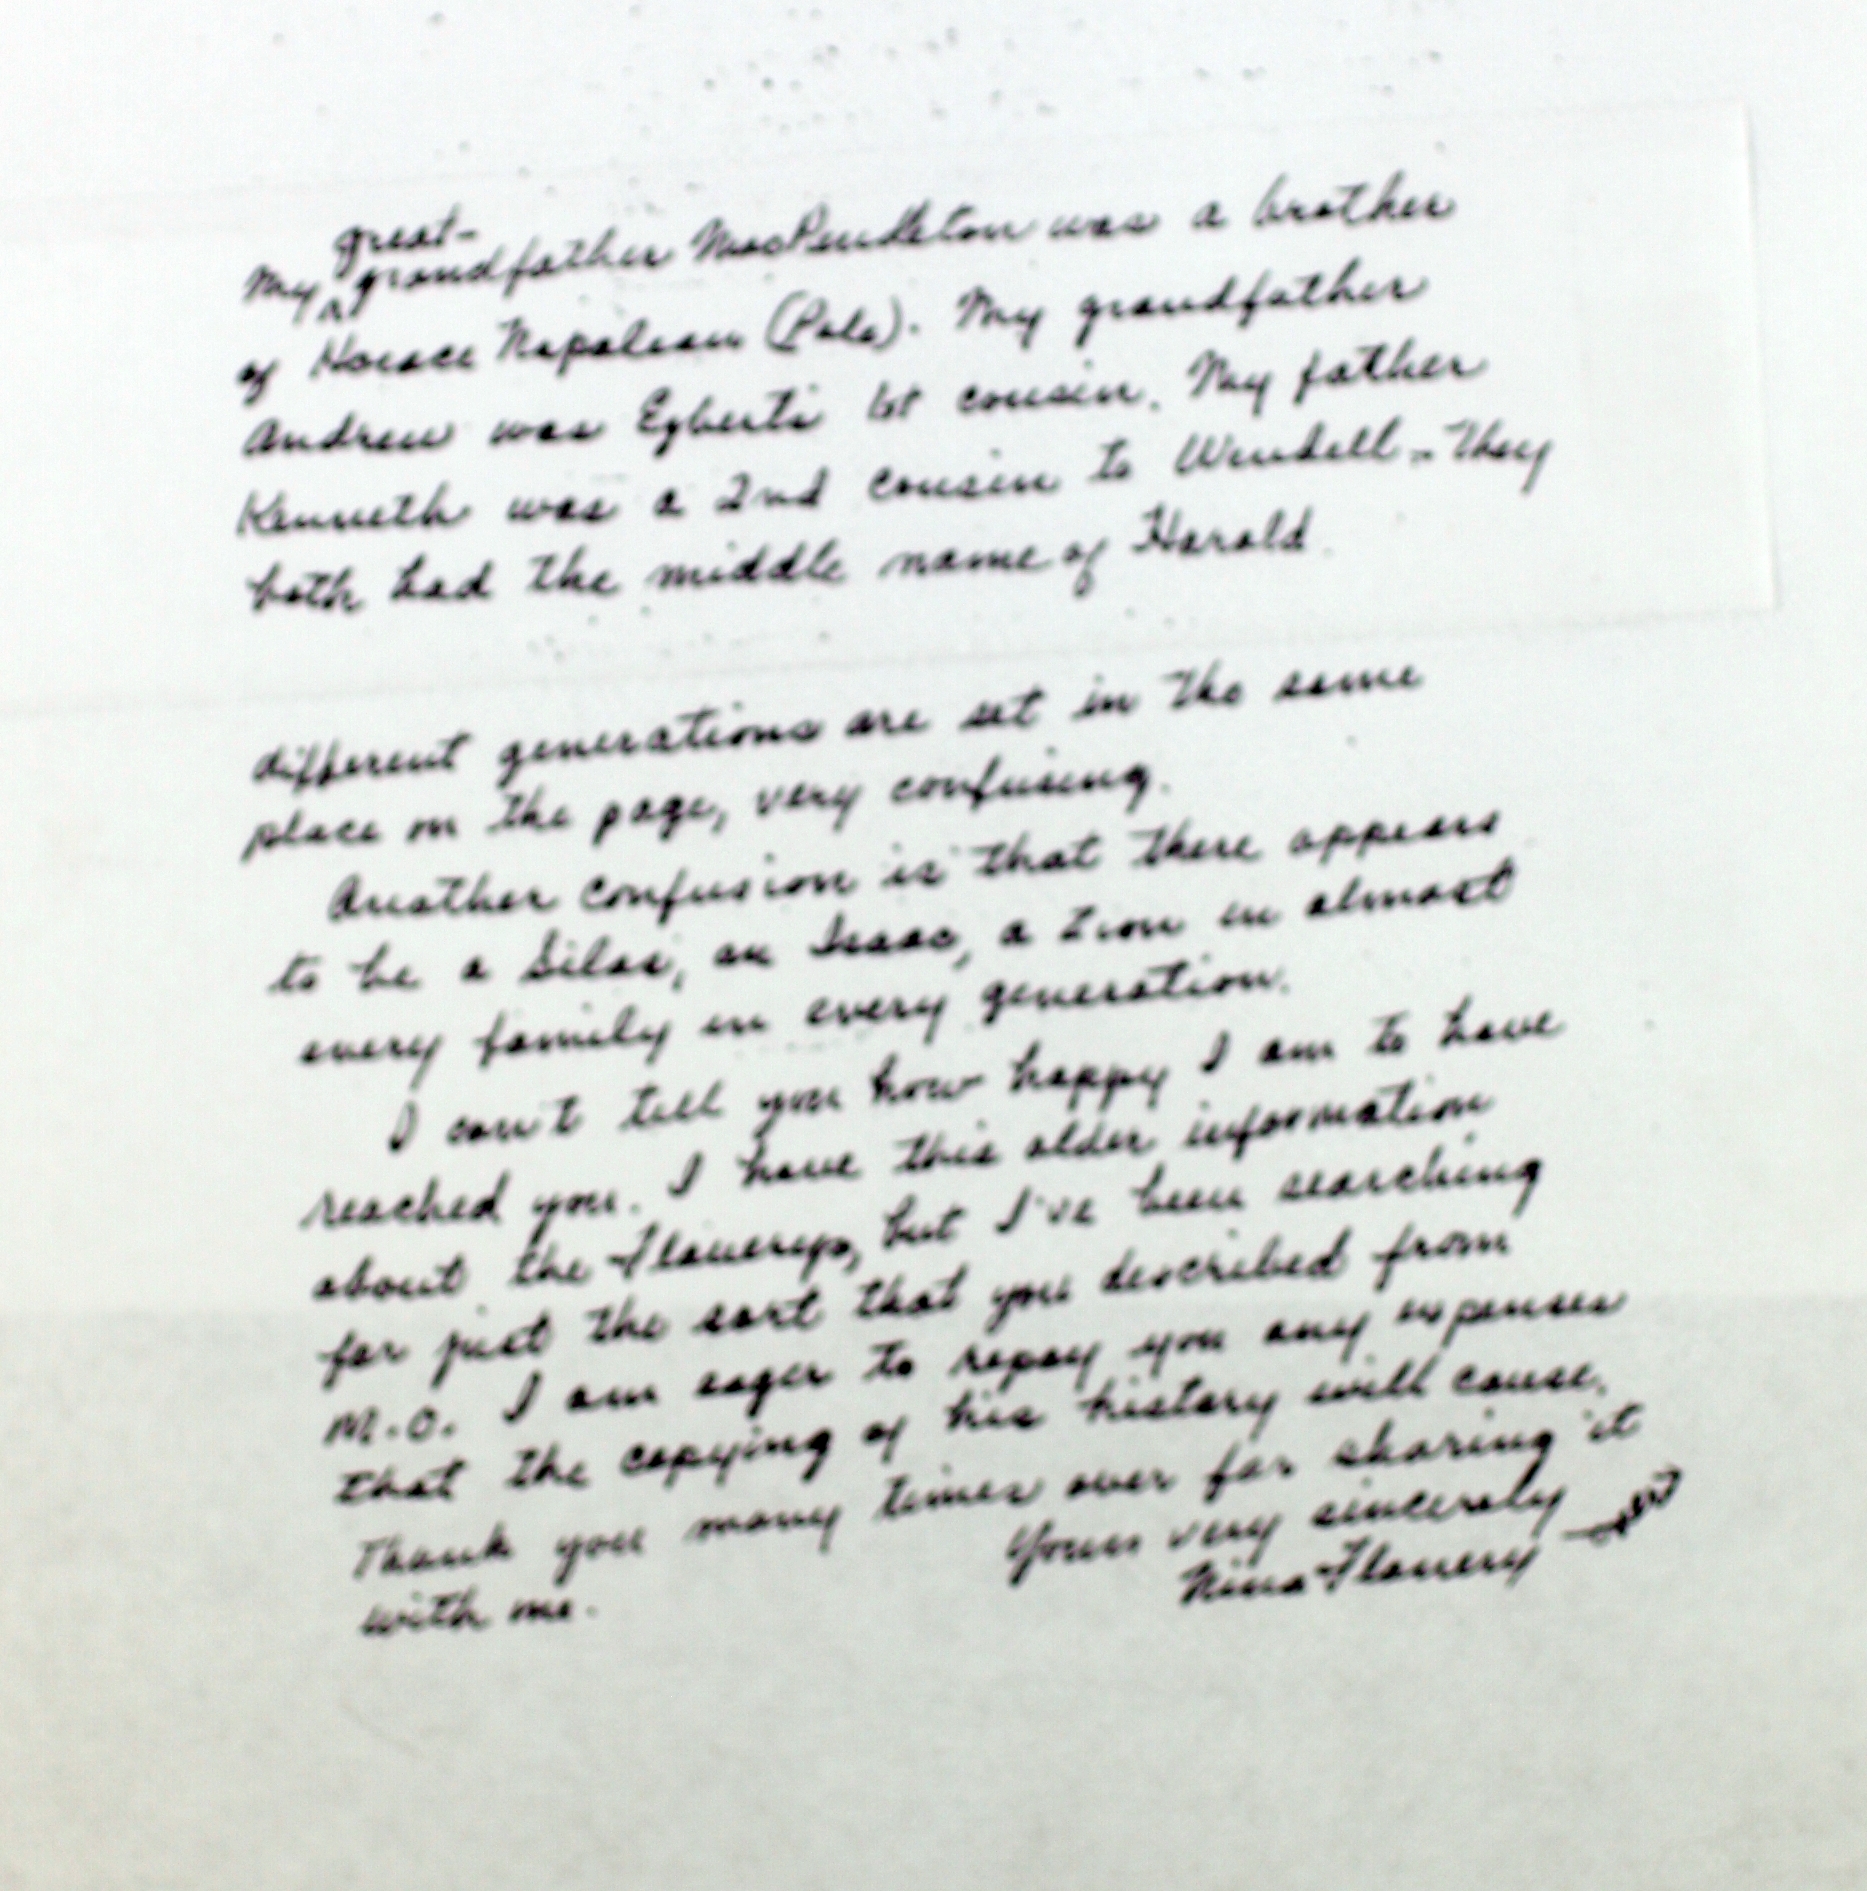 great-
My grandfather MacPendleton was a brother
of Horace Napolean (Pole). My grandfather
Andrew was Egberts 1st cousin. My father
Kenneth was a 2nd cousin to Wendell.. They
both had the middle name of Harold.
different generations are set in the same
place on the page, very confusing.
Another confusion is that there appears
to be a Silas, an Isaac, a Zion in almost
every family in every generation.
I can't tell you how happy I am to have
reached you. I have this older information
about the Flowerys, but I've been searching
for just the sort that you described from
M.O. I am eager to repay you any expenses
that the copying of his history will cause.
Thank you many times over for sharing it
with me.
Yours very sincerely
Nina Flowery